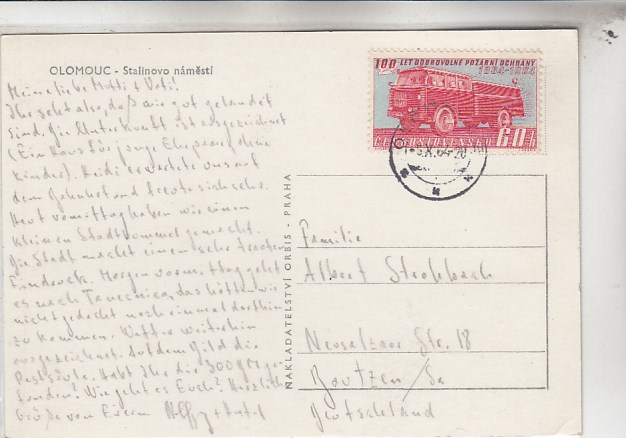 OLOMOUC - Stalinovo náměstí
Meine liebe Mutti & Vati!
Ihr seht also, daß wir gut gelandet
sind. Die Unterkunft ist ausgezeichnet
(Ein Haus für junge Ehepaare, ohne
Kinder). Heidi erwartete uns auf
dem Bahnhof und freute sich sehr.
Heut vormittag haben wir einen
kleinen Stadtbummel gemacht.
Die Stadt macht einen sehr
Eindruck. Morgen vorm. geht
es nach das hätten wir
nicht gedacht noch einmal dorthin
zu kommen. Wetter weiterhin
ausgezeichnet. Auf dem Bild die
Pestsäule. Habt Ihr die 300 M
Wie geht es Euch? Herzlich
Grüße von Euren
100 LET DOBROVOLNÉ POŽÁRNÍ OCHRANY
1864-1964
ČESKOSLOVENSKO 60 h
X.64-20
NAKLADATELSTVÍ ORBIS - PRAHA
Familie
Albert
Str. 18
Bautzen/Sa
Deutschland